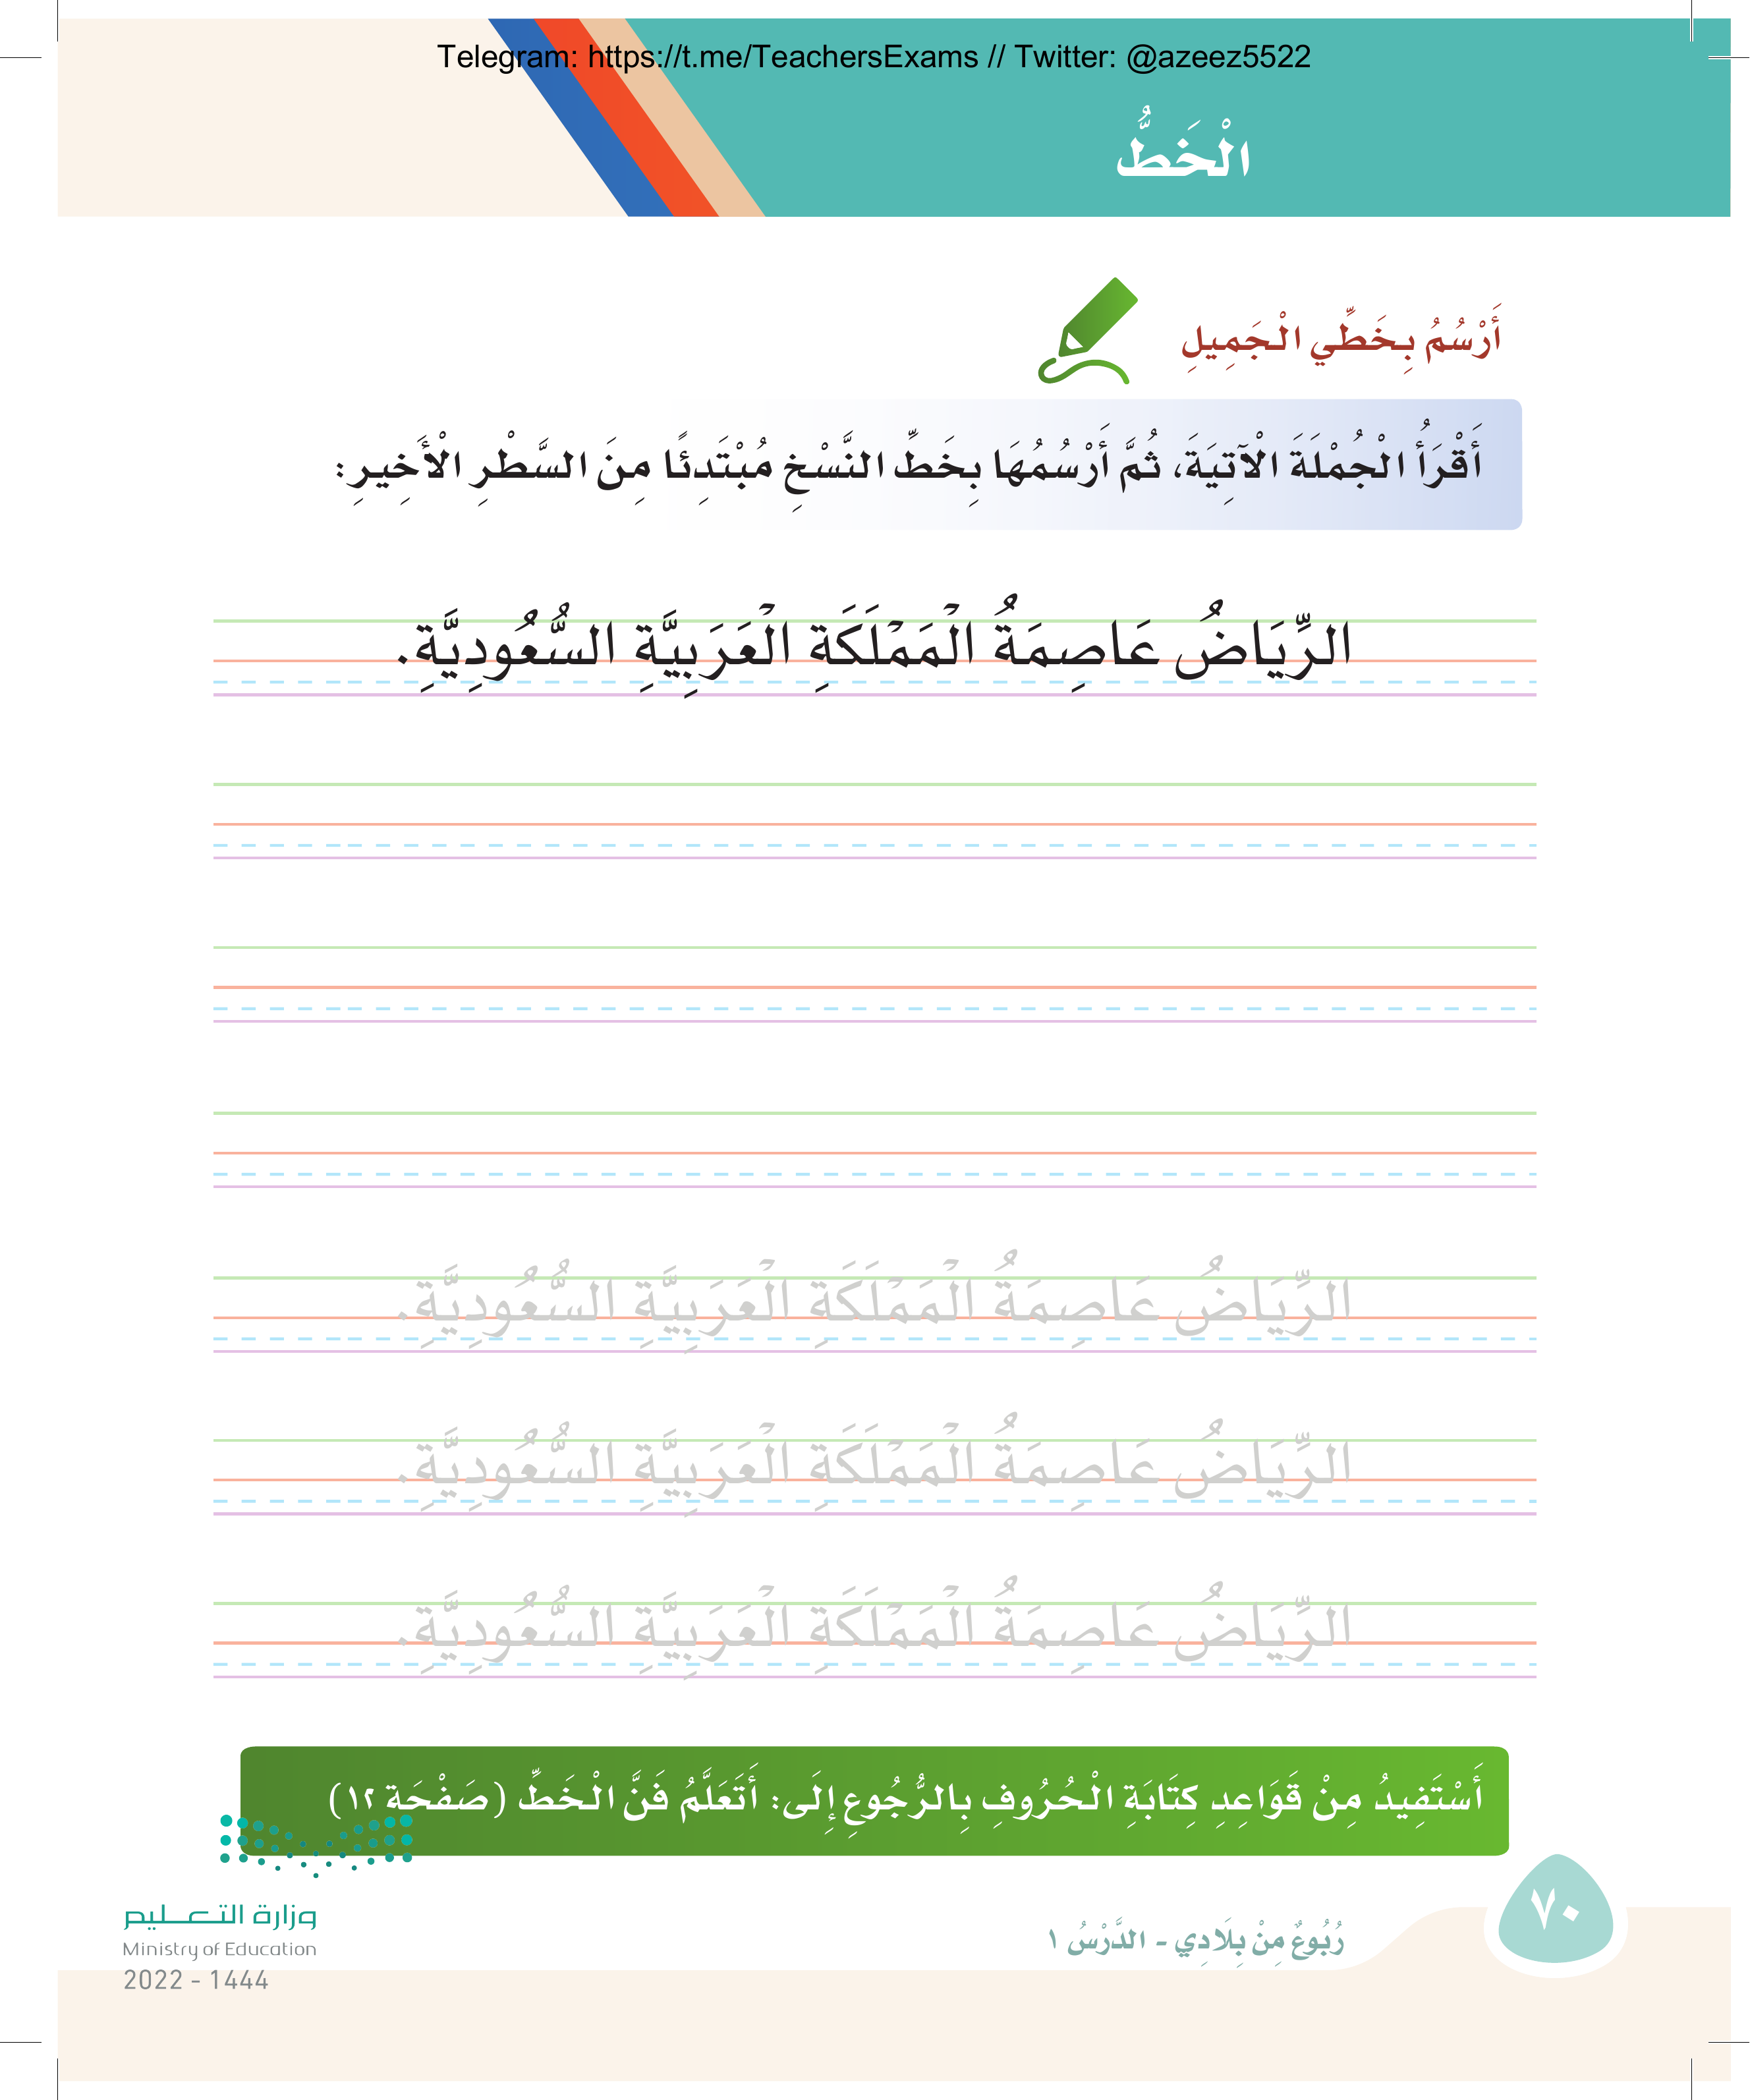 Telegram: https://t.me/TeachersExams // Twitter: @azeez5522
الْخَطُّ
أَرْسُمُ بِخَطِّي الْجَمِيلِ
أَقْرَأُ الْجُمْلَةَ الْآتِيَةَ، ثُمَّ أَرْسُمُهَا بِخَطِّ النَّسْخِ مُبْتَدِئًا مِنَ السَّطْرِ الْأَخِيرِ:
الرِّيَاضُ عَاصِمَةُ الْمَمْلَكَةِ الْعَرَبِيَّةِ السُّعُودِيَّةِ.
الرِّيَاضُ عَاصِمَةُ الْمَمْلَكَةِ الْعَرَبِيَّةِ السُّعُودِيَّةِ.
الرِّيَاضُ عَاصِمَةُ الْمَمْلَكَةِ الْعَرَبِيَّةِ السُّعُودِيَّةِ.
الرِّيَاضُ عَاصِمَةُ الْمَمْلَكَةِ الْعَرَبِيَّةِ السُّعُودِيَّةِ.
أَسْتَفِيدُ مِنْ قَوَاعِدِ كِتَابَةِ الْحُرُوفِ بِالرُّجُوعِ إِلَى: أَتَعَلَّمُ فَنَّ الْخَطِّ (صَفْحَة ١٢)
٧٠
رُبُوعٌ مِنْ بِلَادِي - الدَّرْسُ ١
وزارة التعـــليم
Ministry of Education
2022 - 1444